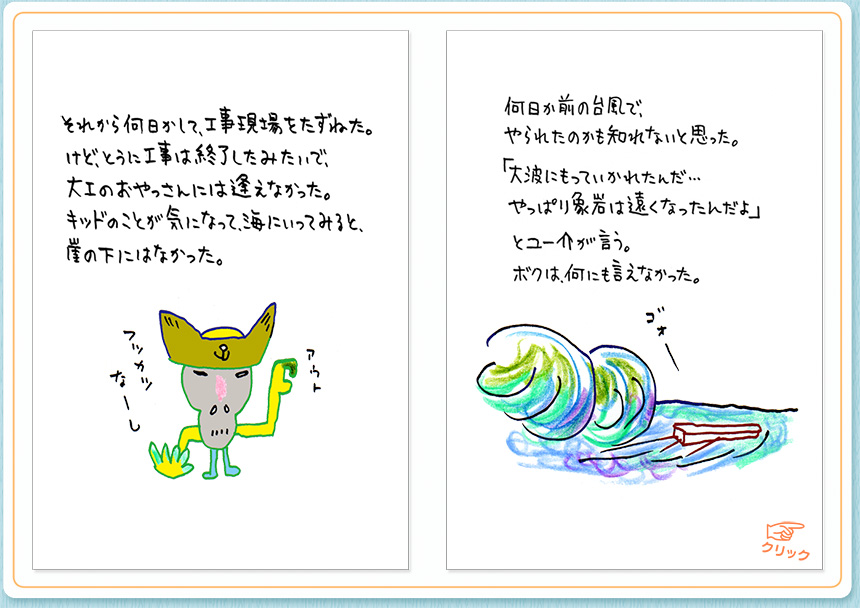 それから何日かして、工事現場をたずねた。
けど、とうに工事は終了したみたいで、
大工のおやっさんには逢えなかった。
キッドのことが気になって、海にいってみると、
崖の下にはなかった。
フッカツ
なーし
アウト
何日か前の台風で、
やられたのかも知れないと思った。
「大波にもっていかれたんだ…
やっぱり象岩は遠くなったんだよ」
とユー介が言う。
ボクは、何にも言えなかった。
ゴォー
クリック